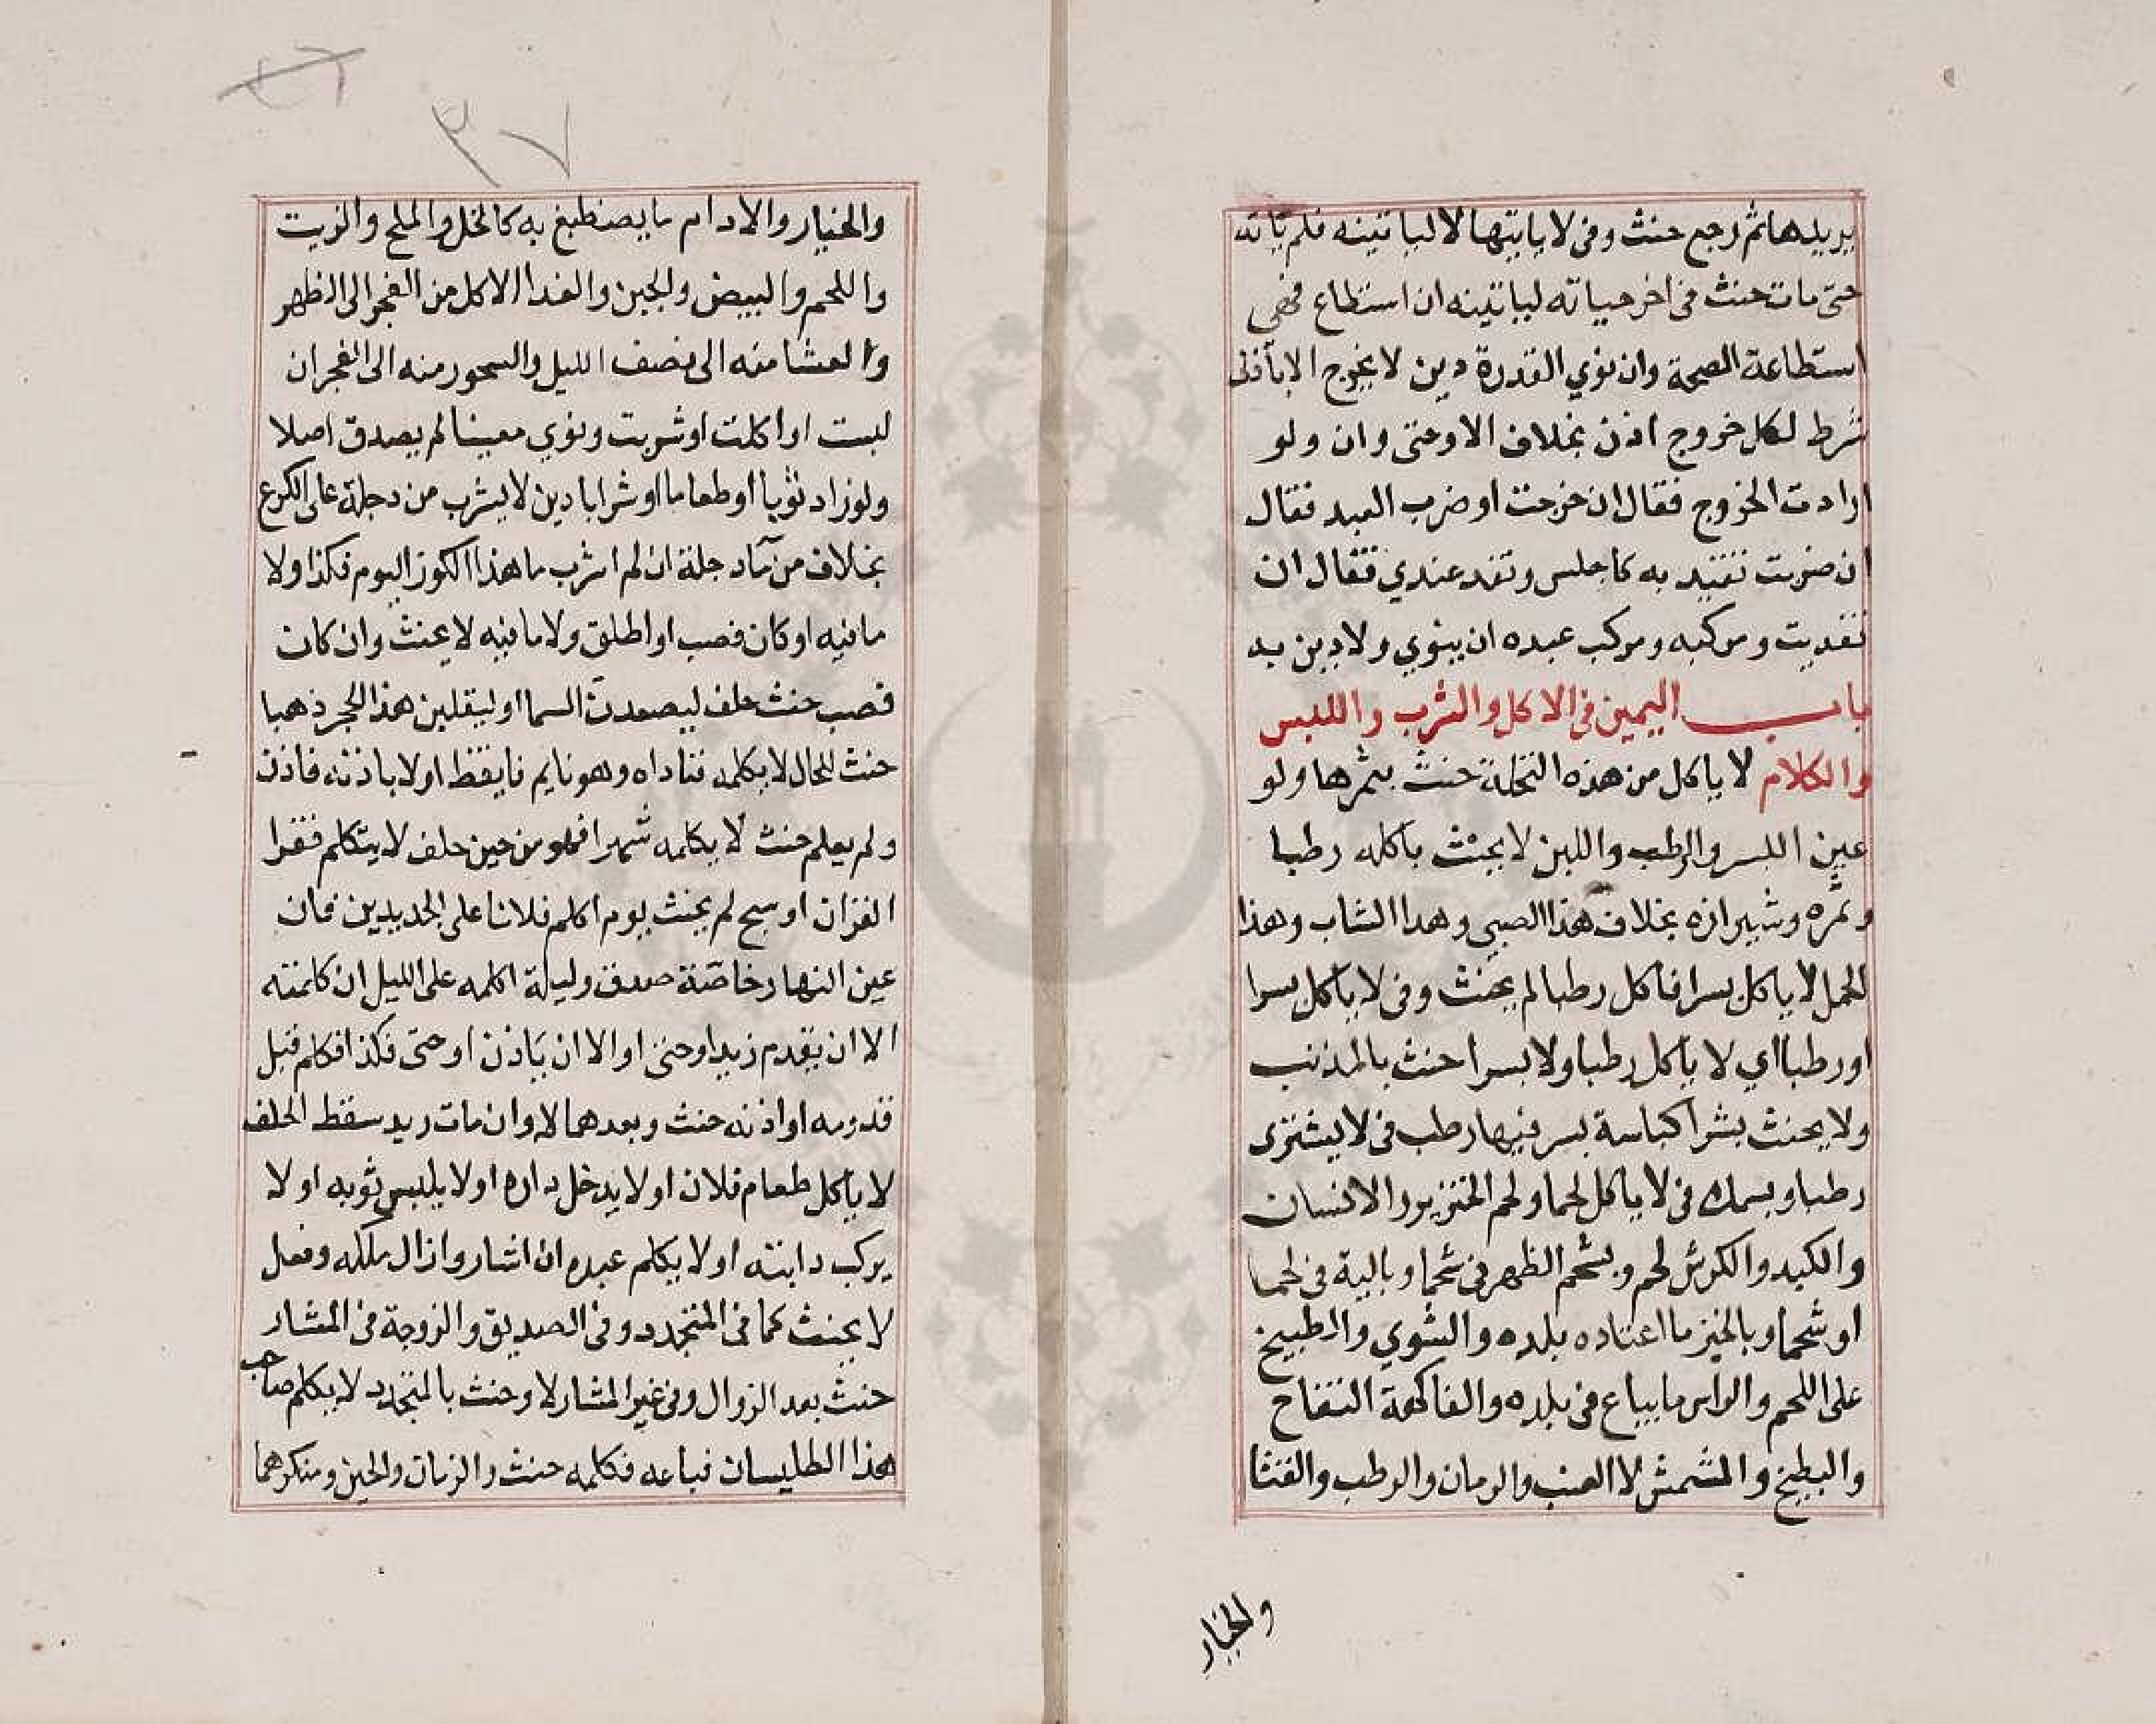 يريدها ثم رجع حنث وفى لا ياتيها لا لياتينه فلم ياته
حتى مات حنث فى اخر حياته لياتينه ان استطاع فهي
استطاعة الصحة وان نوي القدرة دين لا يخرج الا باذنى
شرط لكل خروج اذن بخلاف الا وحتى وان ولو
ارادت الخروج فقال ان خرجت او ضرب العبد فقال
ان ضربت تقيد به كاجلس وتغد عندي فقال ان
تغديت ومركبه ومركب عبده ان ينوي ولا دين به
باب اليمين فى الاكل والشرب واللبس
والكلام لا ياكل من هذه النخلة حنث بثمرها ولو
عين البسر والرطب واللبن لا يحنث باكله رطبا
وتمره وشيرازه بخلاف هذا الصبي وهدا الشاب وهذا
الحمل لا ياكل بسرا فاكل رطبا لم يحنث وفى لا ياكل بسرا
او رطبا اي لا ياكل رطبا ولا بسرا حنث بالمذنب
ولا يحنث بشرا كباسة بسر فيها رطب فى لا يشترى
رطبا وبسمك فى لا ياكل لحما ولحم الخنزير والانسان
والكبد والكرش لحم وبشحم الظهر فى شحما وبالية فى لحما
او شحما وبالخبز ما اعتاده بلده والشوي والطبيخ
على اللحم والراس ما يباع فى بلده والفاكهة التفاح
والبطيخ والمشمش لا العنب والرمان والرطب والقثا
والخيار
٣٧
والخيار والادام ما يصطبغ به كالخل والملح والزيت
واللحم والبيض والجبن والغدا الاكل من الفجر الى الظهر
والعشا منه الى نصف الليل والسحور منه الى الفجر ان
لبست او اكلت او شربت ونوي معينا لم يصدق اصلا
ولو زاد ثوبا او طعاما او شرابا دين لا يشرب من دجلة على الكرع
بخلاف من ماء دجلة ان لم اشرب ما هذا الكوز اليوم فكذا ولا
ما فيه او كان فصب او اطلق ولا ما فيه لا يحنث وان كان
فصب حنث حلف ليصعدن السما او ليقلبن هذا الحجر ذهبا
حنث للحال لا يكلمه فناداه وهو نايم فايقظ او لا باذنه فاذن
ولم يعلم حنث لا يكلمه شهرا فهو من حين حلف لا يتكلم فقرا
القران او سبح لم يحنث يوم اكلم فلانا على الجديدين فان
عين النهار خاصة صدق وليلة اكلمه على الليل ان كلمته
الا ان يقدم زيد او حتى او الا ان ياذن او حتى فكذا فكلم قبل
قدومه او اذنه حنث وبعدهما لا وان مات زيد سقط الحلف
لا ياكل طعام فلان او لا يدخل داره او لا يلبس ثوبه او لا
يركب دابته او لا يكلم عبده ان اشار وازال ملكه وفعل
لا يحنث كما فى المتجدد وفى الصديق والزوجة فى المشار
حنث بعد الزوال وفى غير المشار لا وحنث بالمتجدد لا يكلم صاحب
هذا الطليسان فباعه فكلمه حنث والزمان والحين ومنكرهما